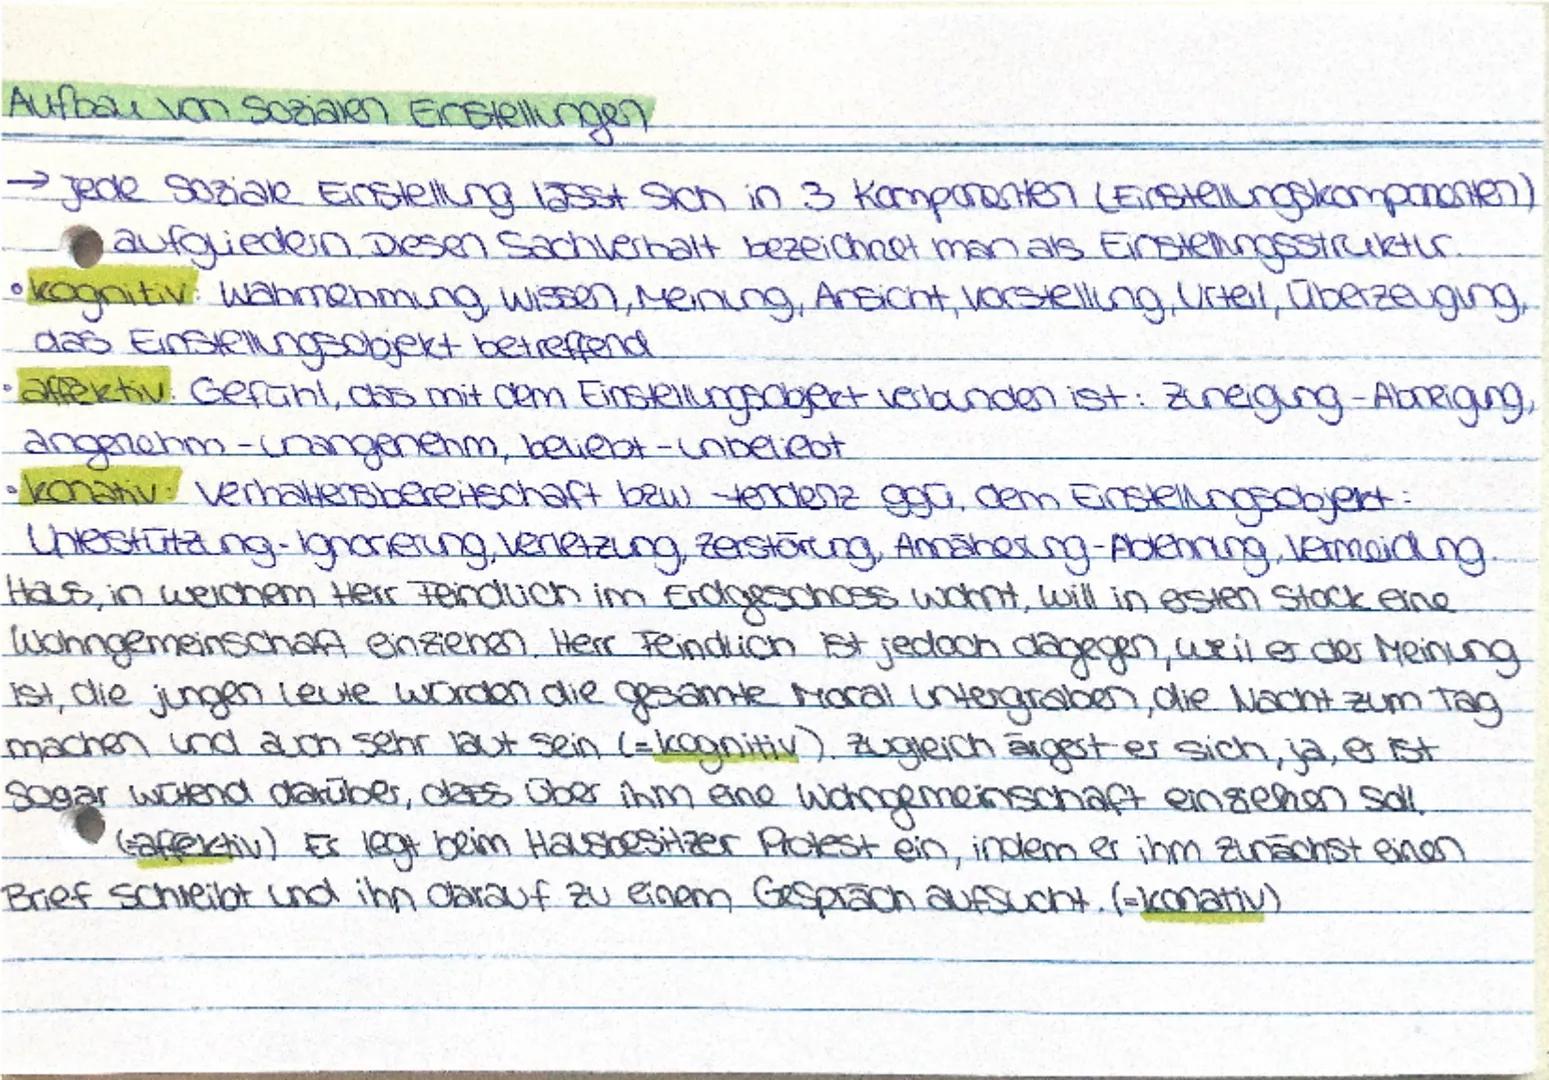 Aufbau von sozialen Einstellungen
→ Jede soziale Einstellung lässt sich in 3 Komponenten (Einstellungskomponenten)
aufgliedern. Diesen Sachverhalt bezeichnet man als Einstellungsstruktur.
• kognitiv: Wahrnehmung, Wissen, Meinung, Ansicht, Vorstellung, Urteil, Überzeugung,
das Einstellungsobjekt betreffend
• affektiv: Gefühl, das mit dem Einstellungsobjekt verbunden ist: Zuneigung - Abneigung,
angenehm - unangenehm, beliebt - unbeliebt
• konativ: Verhaltensbereitschaft bzw -tendenz ggü. dem Einstellungsobjekt:
Unterstützung - Ignorierung, Verletzung, Zerstörung, Annäherung - Ablehnung, Vermeidung.
Haus, in welchem Herr Feindlich im Erdgeschoss wohnt, will in ersten Stock eine
Wohngemeinschaft einziehen. Herr Feindlich ist jedoch dagegen, weil er der Meinung
ist, die jungen Leute würden die gesamte Moral untergraben, die Nacht zum Tag
machen und auch sehr laut sein (=kognitiv). Zugleich ärgert er sich, ja, er ist
sogar wütend darüber, dass über ihm eine Wohngemeinschaft einziehen soll.
(=affektiv) Er legt beim Hausbesitzer Protest ein, indem er ihm zunächst einen
Brief schreibt und ihn darauf zu einem Gespräch aufsucht. (=konativ)